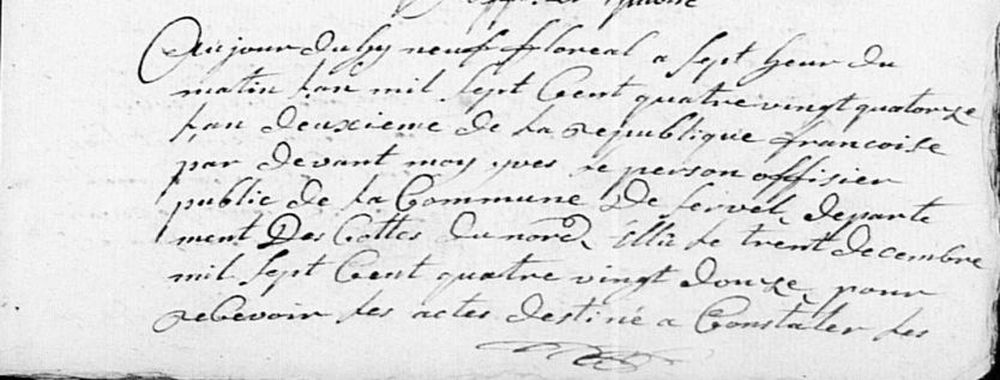 Aujourduhy neuf floreal a sept heur du
matin lan mil sept Cent quatre vingt quatorze
lan deuxieme de la republique francoise
par devant moy yves le person offisier
public de la Commune de servel departe
ment Des Cottes du nord Ellu le trent decembre
mil sept Cent quatre vingt douze pour
recevoir les actes destiné a Constater les